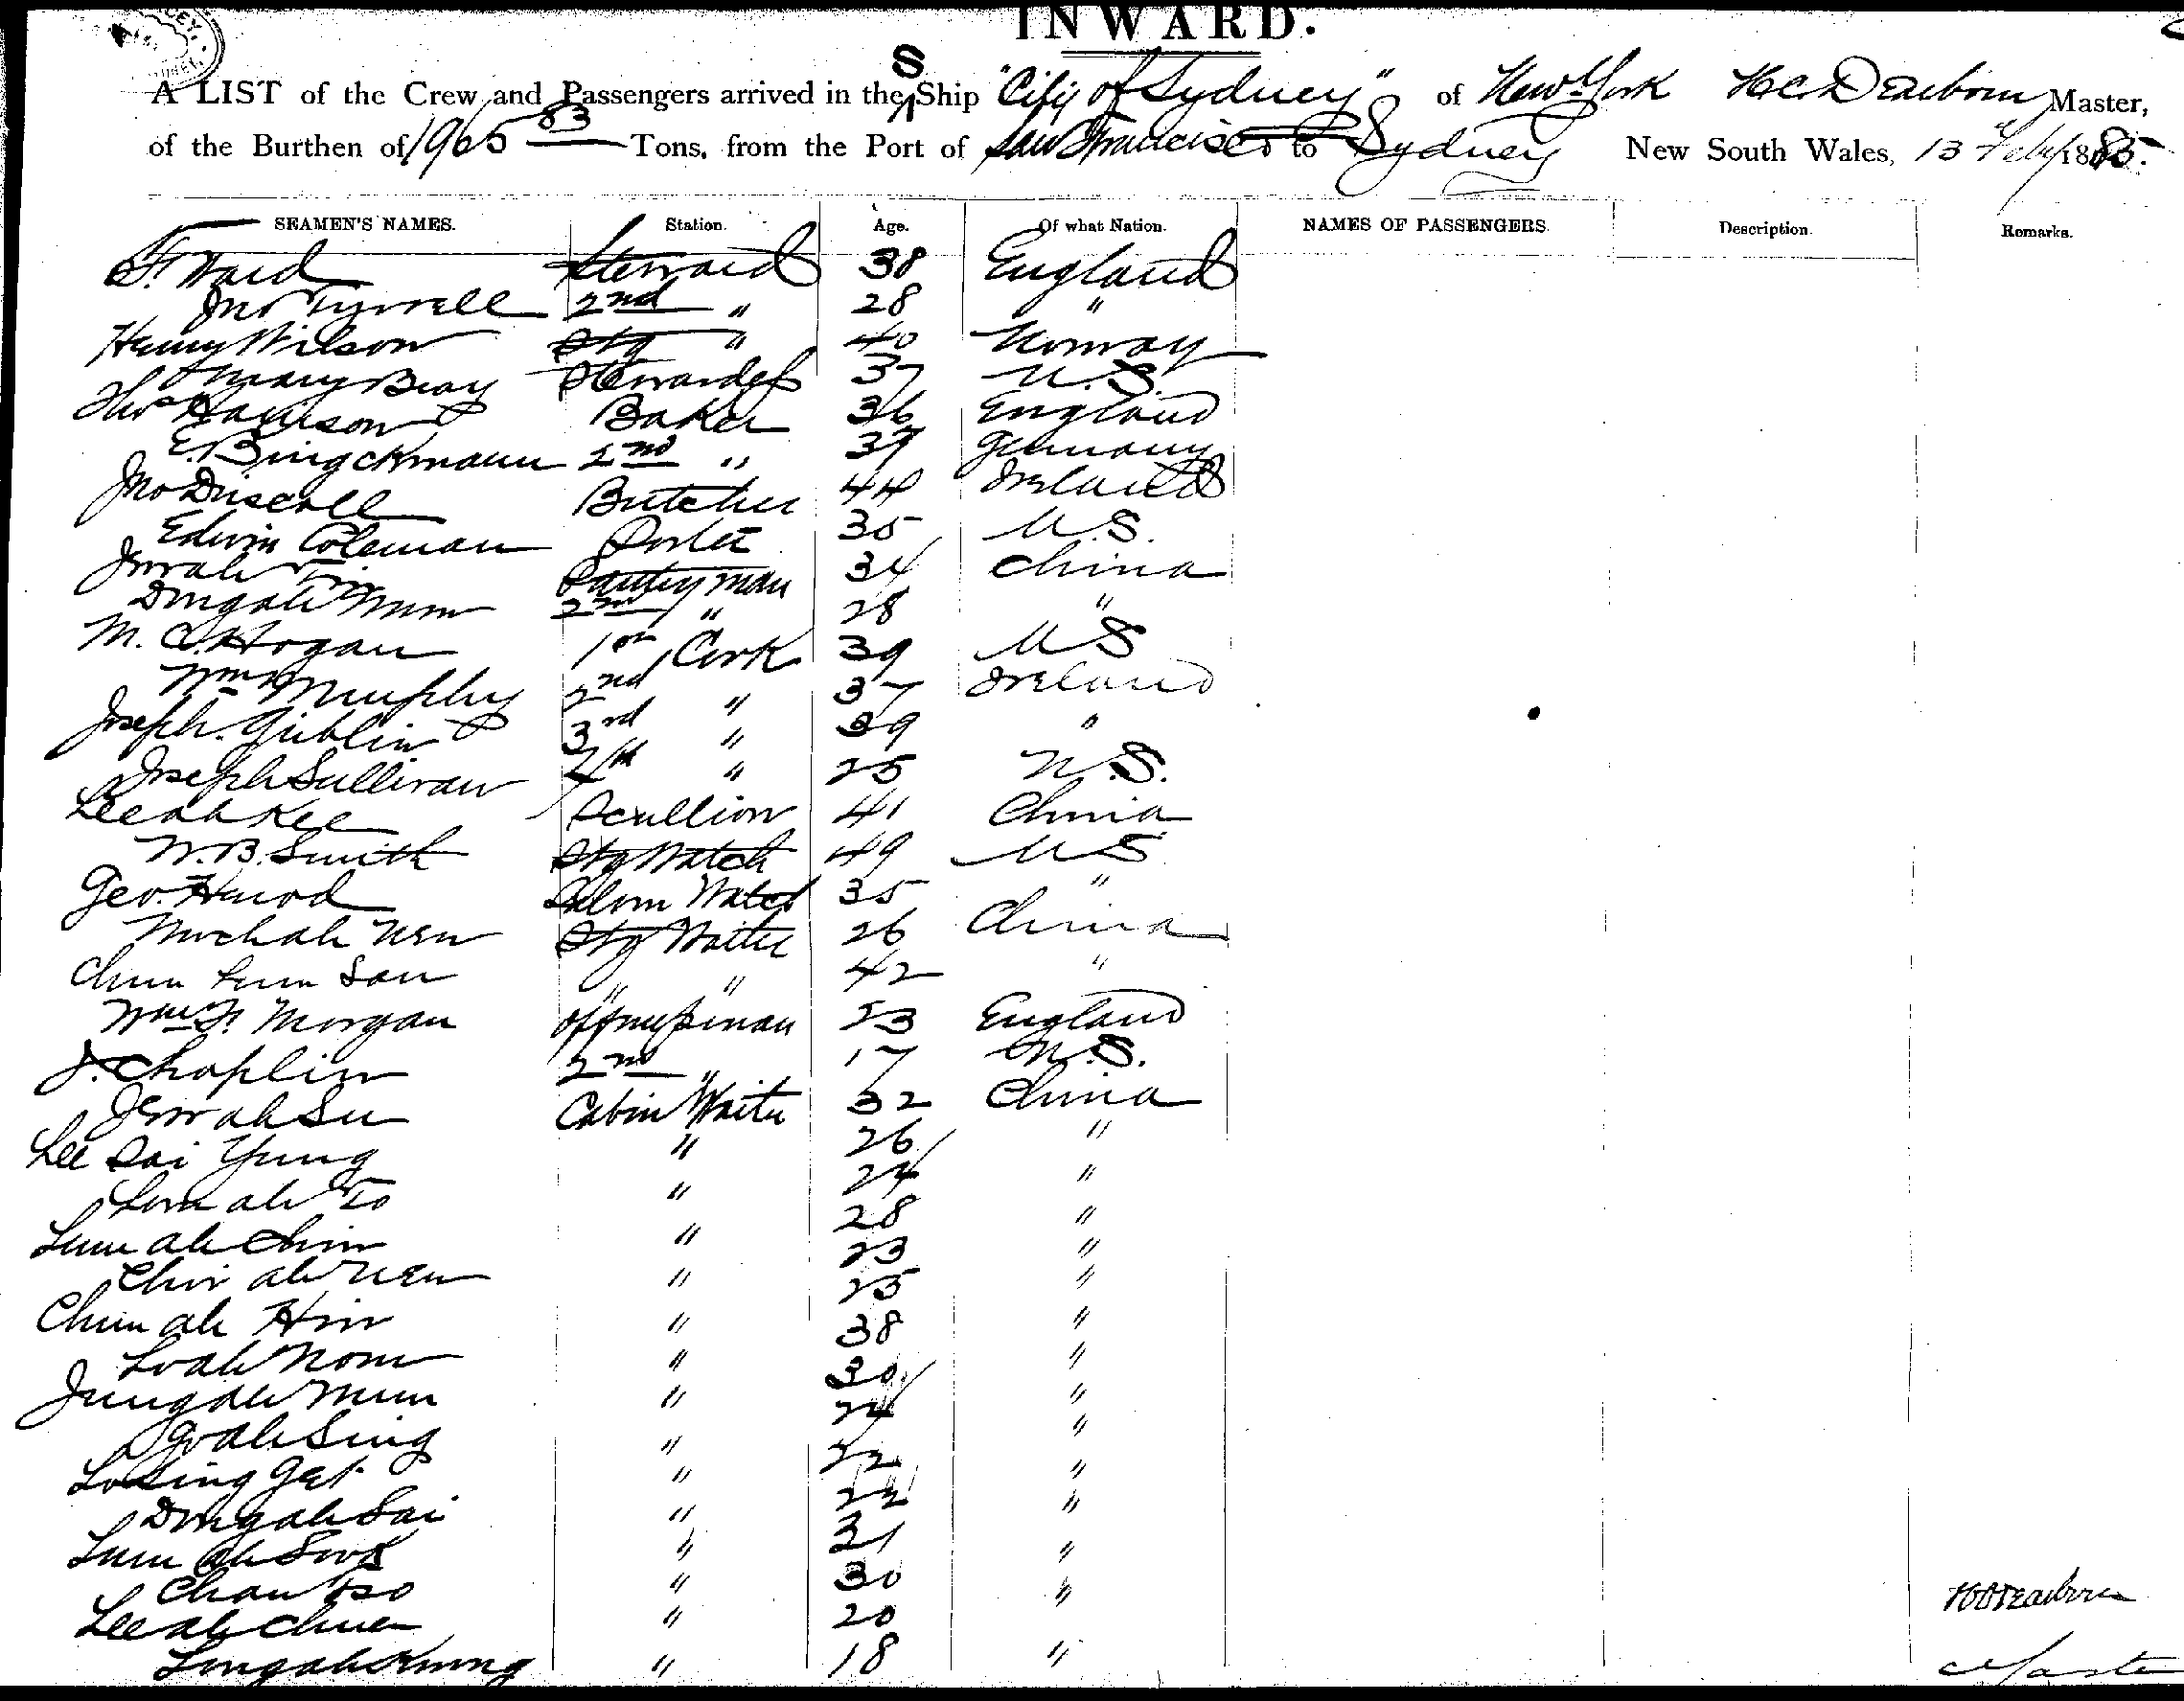 INWARD.
A LIST of the Crew and Passengers arrived in the S Ship "City of Sydney" of New York H.C. Dearborn Master,
of the Burthen of 1965 83 Tons, from the Port of San Francisco to Sydney New South Wales, 13 Feby 1885.
SEAMEN'S NAMES. Station. Age. Of what Nation. NAMES OF PASSENGERS. Description. Remarks.
F. Ward Steward 38 England
Jno Tyrrell 2nd " 28 "
Henry Wilson Stg " 40 Norway
Mary Bray Stewardess 37 U.S.
Thos Harrison Baker 36 England
E. Bingckmann 2nd " 37 Germany
Jno Driscoll Butcher 44 Ireland
Edwin Coleman Porter 35 U.S.
Pantryman 34 China
2nd " 28 "
M. C. Hogan 1st Cook 39 U.S
Wm Murphy 2nd " 37 Ireland
Joseph Giblin 3rd " 39 "
Joseph Sullivan 4th " 25 U.S.
Lee ah Kee Scullion 41 China
W. B. Smith Stg Watch 49 U S
Geo. Saloon Watch 35 "
Stg Waiter 26 China
Chun San " " 42 "
Wm F. Morgan 23 England
J. Chaplin 2nd " 17 U.S.
ah Su Cabin Waiter 32 China
Lee Sai Yung " 26 "
ah To " 24 "
Lum ah Chin " 28 "
" 23 "
Chun ah Hin " 25 "
" 38 "
Jung ah Mun " 30 "
Go ah Sing " 24 "
Lo Sing Get " 22 "
Dong ah Sai " "
Lum ah Sook " 21 "
Chan Tso " 30 "
Lee ah Chuen " 20 "
" 18 "
HC Dearborn
Master